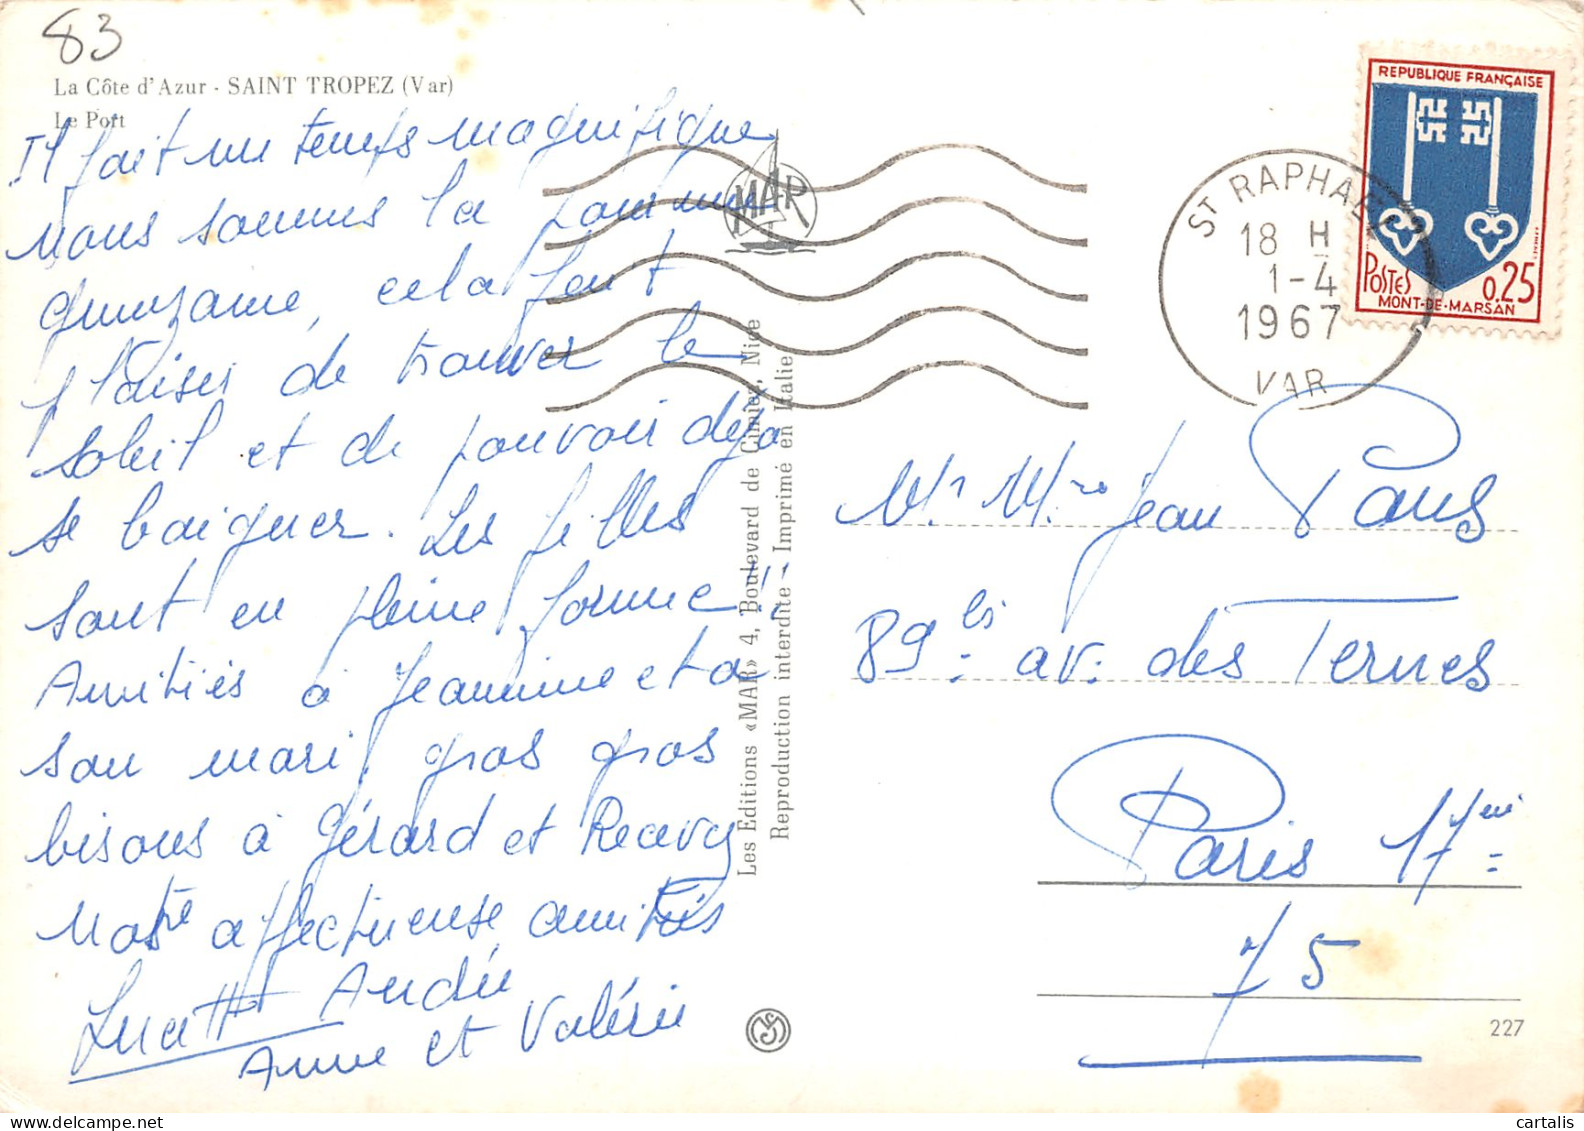 83
La Côte d'Azur - SAINT TROPEZ (Var)
Le Port
Il fait un temps magnifique
nous sommes là pour une
quinzaine, cela fait
plaisir de trouver le
soleil et de pouvoir déjà
se baigner. Les filles
sont en pleine forme !!
Amitiés à Jeannine et à
son mari, gros gros
bisous à Gérard et
Notre affectueuse amitiés
Andrée
Anne et Valérie
Les Editions «MAR» 4, Boulevard de Cimiez, Nice
Reproduction interdite - Imprimé en Italie
MAR
ST RAPHAEL
18 H
1-4
1967
VAR
REPUBLIQUE FRANÇAISE
POSTES 0,25
MONT-DE-MARSAN
Mr Mme Jean
89 bis av. des Ternes
Paris 17eme
75
227
cartalis